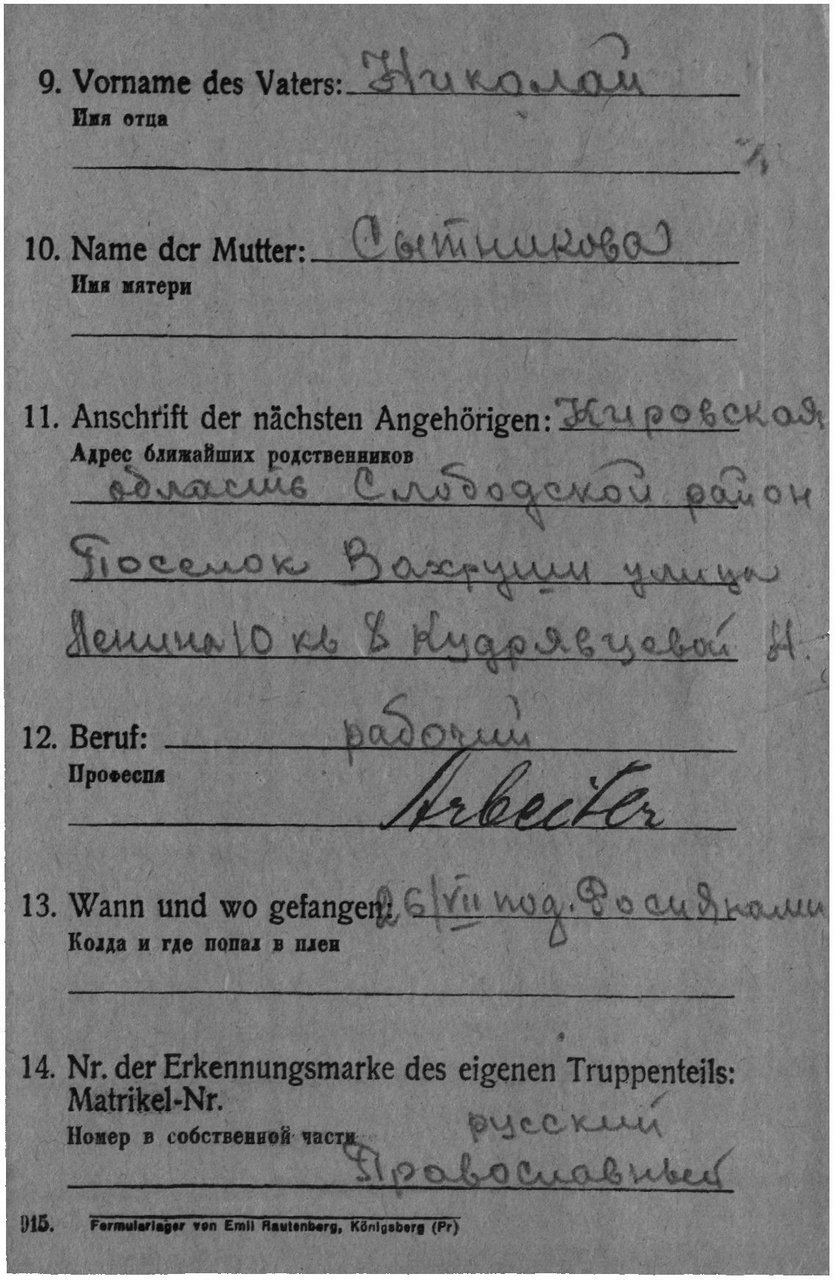 9. Vorname des Vaters: Николай
Имя отца
10. Name der Mutter: Сытникова
Имя мятери
11. Anschrift der nächsten Angehörigen: Кировская
Адрес ближайших родственников
область Слободской район
Поселок Вахруши улица
Ленина 10 кв 8 Кудрявцевой Н.
12. Beruf: рабочий
Професпя
Arbeiter
13. Wann und wo gefangen: 26/VII под. Росиянами
Колда и где попал в плен
14. Nr. der Erkennungsmarke des eigenen Truppenteils:
Matrikel-Nr.
русский
Номер в собственной части
Православный
915. Formularlager von Emil Rautenberg, Königsberg (Pr)